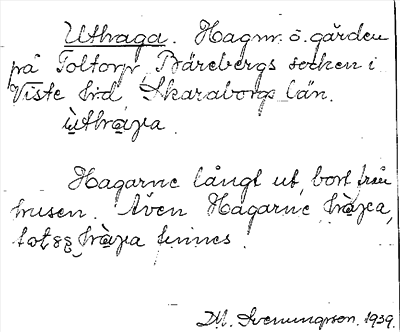 Uthaga. Hagmr ö. gården
på Toltorp, Bärebergs socken i
Viste hrd, Skaraborgs län.
ùthɑ̀ɣa.
Hagarne långt ut, bort från
husen. Även Hagarne, hɑ̀ɣea,
hɑ̀ɣa finnes.
M. Svenungsson. 1939.